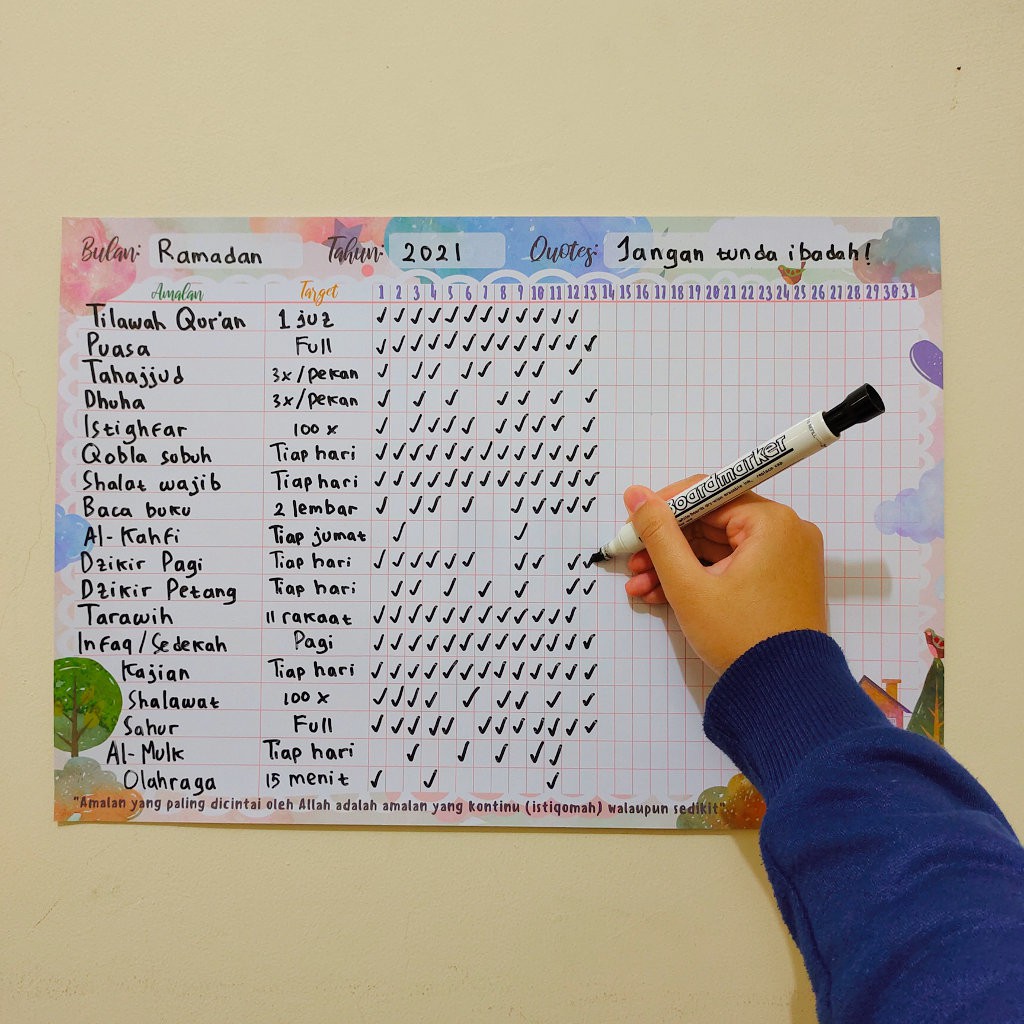 Bulan: Ramadan Tahun: 2021 Quotes: Jangan tunda ibadah!
Amalan Target 1 2 3 4 5 6 7 8 9 10 11 12 13 14 15 16 17 18 19 20 21 22 23 24 25 26 27 28 29 30 31
Tilawah Qur'an 1 juz ✓ ✓ ✓ ✓ ✓ ✓ ✓ ✓ ✓ ✓ ✓ ✓
Puasa Full ✓ ✓ ✓ ✓ ✓ ✓ ✓ ✓ ✓ ✓ ✓ ✓ ✓
Tahajjud 3x/pekan ✓ ✓ ✓ ✓ ✓ ✓ ✓ ✓
Dhuha 3x/pekan ✓ ✓ ✓ ✓ ✓ ✓ ✓
Istighfar 100 x ✓ ✓ ✓ ✓ ✓ ✓ ✓ ✓ ✓ ✓
Qobla subuh Tiap hari ✓ ✓ ✓ ✓ ✓ ✓ ✓ ✓ ✓ ✓ ✓ ✓ ✓
Shalat wajib Tiap hari ✓ ✓ ✓ ✓ ✓ ✓ ✓ ✓ ✓ ✓ ✓ ✓ ✓
Baca buku 2 lembar ✓ ✓ ✓ ✓ ✓ ✓ ✓ ✓ ✓
Al-Kahfi Tiap jumat ✓ ✓
Dzikir Pagi Tiap hari ✓ ✓ ✓ ✓ ✓ ✓ ✓ ✓ ✓ ✓
Dzikir Petang Tiap hari ✓ ✓ ✓ ✓ ✓ ✓ ✓
Tarawih 11 rakaat ✓ ✓ ✓ ✓ ✓ ✓ ✓ ✓ ✓ ✓ ✓ ✓
Infaq/Sedekah Pagi ✓ ✓ ✓ ✓ ✓ ✓ ✓ ✓ ✓ ✓ ✓ ✓ ✓
Kajian Tiap hari ✓ ✓ ✓ ✓ ✓ ✓ ✓ ✓ ✓ ✓ ✓ ✓ ✓
Shalawat 100 x ✓ ✓ ✓ ✓ ✓ ✓ ✓ ✓ ✓
Sahur Full ✓ ✓ ✓ ✓ ✓ ✓ ✓ ✓ ✓ ✓ ✓ ✓
Al-Mulk Tiap hari ✓ ✓ ✓ ✓ ✓
Olahraga 15 menit ✓ ✓ ✓
"Amalan yang paling dicintai oleh Allah adalah amalan yang kontinu (istiqomah) walaupun sedikit"
Boardmarker